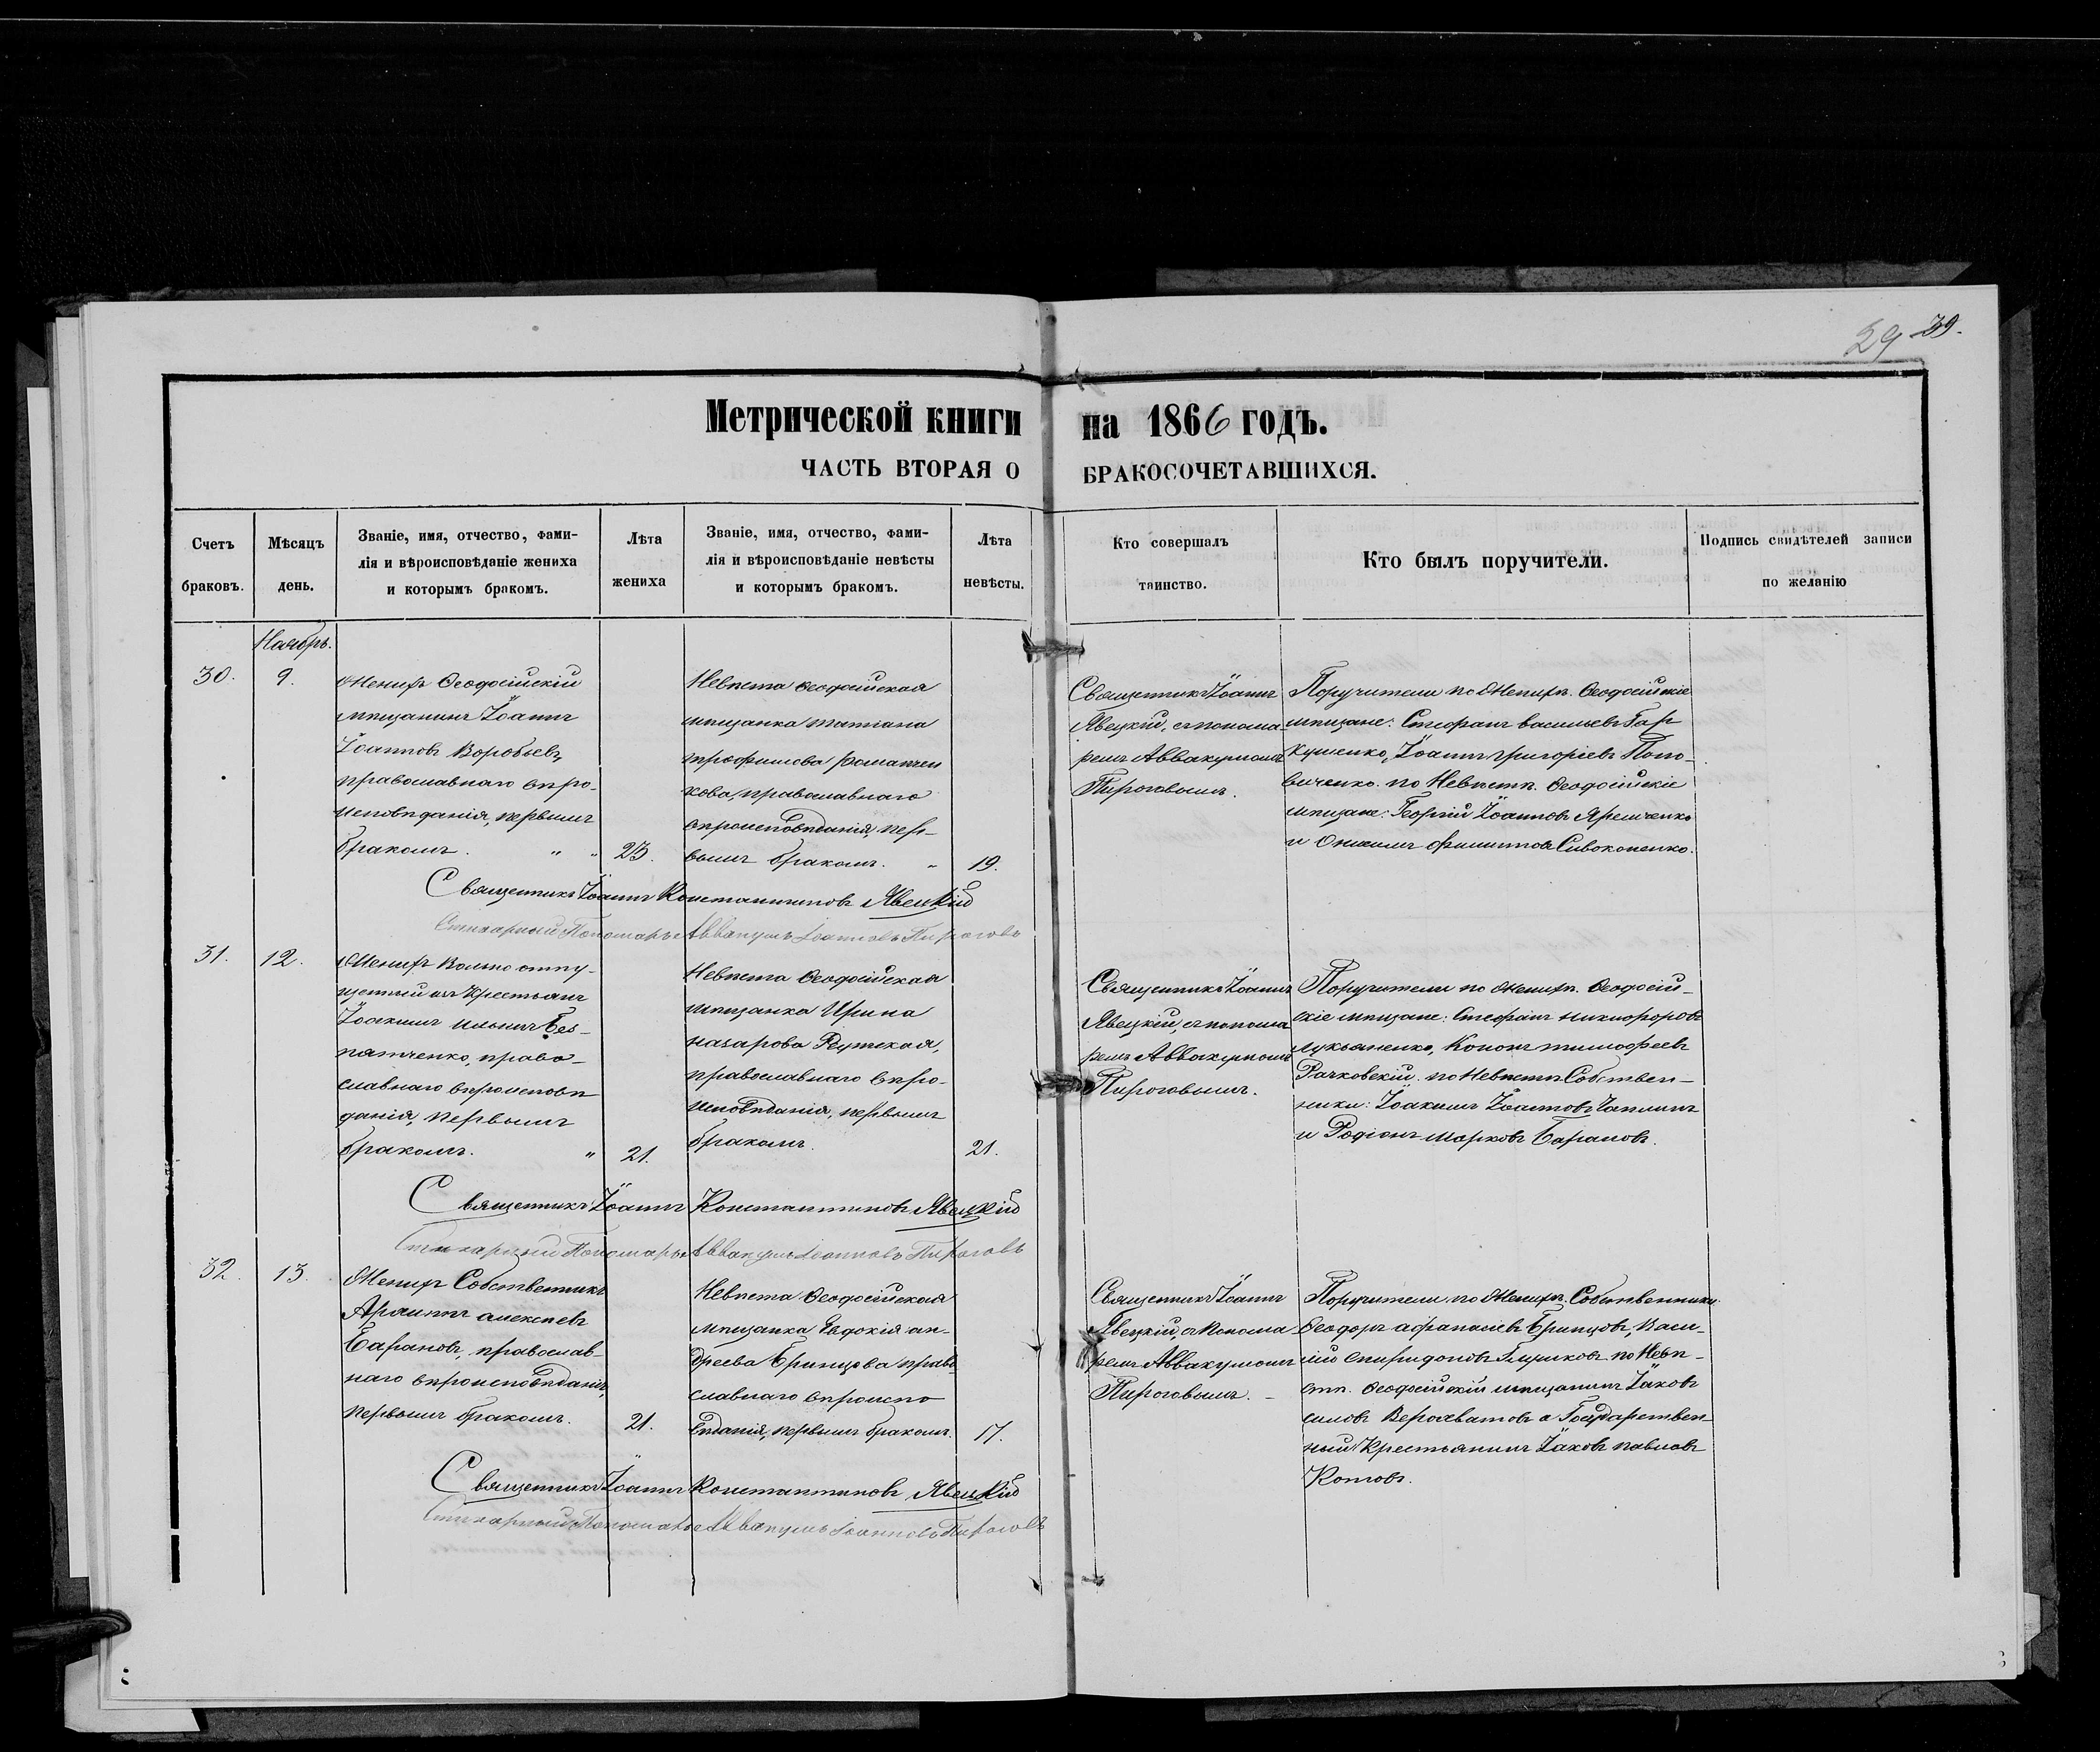 29 39.
Метрической книги на 1866 годъ.
ЧАСТЬ ВТОРАЯ О БРАКОСОЧЕТАВШИХСЯ.
Счетъ браковъ.
Мѣсяцъ день.
Званіе, имя, отчество, фами-
лія и вѣроисповѣданіе жениха
и которымъ бракомъ.
Лѣта жениха
Званіе, имя, отчество, фами-
лія и вѣроисповѣданіе невѣсты
и которымъ бракомъ.
Лѣта невѣсты.
Кто совершалъ таинство.
Кто былъ поручители.
Подпись свидѣтелей записи по желанію
Ноябрь.
30.
9.
Женихъ Ѳеодосійскій
мѣщанинъ Іоаннъ
Іоанновъ Воробьевъ,
православнаго вѣро-
исповѣданія, первымъ
бракомъ. " "
23.
Невѣста Ѳеодосійская
мѣщанка Татіана
Трофимова
православнаго
вѣроисповѣданія, пер-
вымъ бракомъ. "
19.
Священникъ Іоаннъ
Явецкій, съ понома-
ремъ Аввакумомъ
Пироговымъ.
Поручители по Женихѣ. Ѳеодосійскіе
мѣщане: Стефанъ Васильевъ Гар
кушенко, Іоаннъ Григоріевъ Попо-
виченко. по Невѣстѣ. Ѳеодосійскіе
мѣщане: Георгій Іоанновъ Яременко
и Онисимъ Филиповъ Сивоконенко.
Священникъ Іоаннъ Константиновъ Явецкій
Стихарный Пономарь Аввакумъ Іоанновъ Пироговъ
31.
12.
Женихъ Вольно отпу-
щенный изъ Крестьянъ
Іоакимъ Ильинъ Без-
пятченко, право-
славнаго вѣроисповѣ
данія, первымъ
бракомъ. "
21.
Невѣста Ѳеодосійская
мѣщанка Ирина
Назарова
православнаго вѣро-
исповѣданія, первымъ
бракомъ.
21.
Священникъ Іоаннъ
Явецкій, съ понома
ремъ Аввакумомъ
Пироговымъ.
Поручители по Женихѣ. Ѳеодосій-
скіе мѣщане: Стефанъ Никифоровъ
Лукьяненко, Кононъ Тимофеевъ
Рачковскій. по Невѣстѣ Собствен-
ники: Іоакимъ Іоанновъ Чаплинъ
и Родіонъ Марковъ Барановъ.
Священникъ Іоаннъ Константиновъ Явецкій
Стихарный Пономарь Аввакумъ Іоанновъ Пироговъ
32.
13.
Женихъ Собственникъ
Алексѣевъ
Барановъ, православ-
наго вѣроисповѣданія,
первымъ бракомъ.
21.
Невѣста Ѳеодосійская
мѣщанка Евдокія Ан-
дреева Бринцова право
славнаго вѣроиспо
вѣданія, первымъ бракомъ.
17.
Священникъ Іоаннъ
Явецкій, съ Понома
ремъ Аввакумомъ
Пироговымъ. -
Поручители по Женихѣ. Собственники
Ѳеодоръ Афанасіевъ Бринцовъ, Васи-
лій Спиридоновъ Глушковъ по Невѣ-
стѣ. Ѳеодосійскій мѣщанинъ Іаковъ
и Государствен-
ный Крестьянинъ Іаковъ Павловъ
Котовъ.
Священникъ Іоаннъ Константиновъ Явецкій
Стихарный Пономарь Аввакумъ Іоанновъ Пироговъ